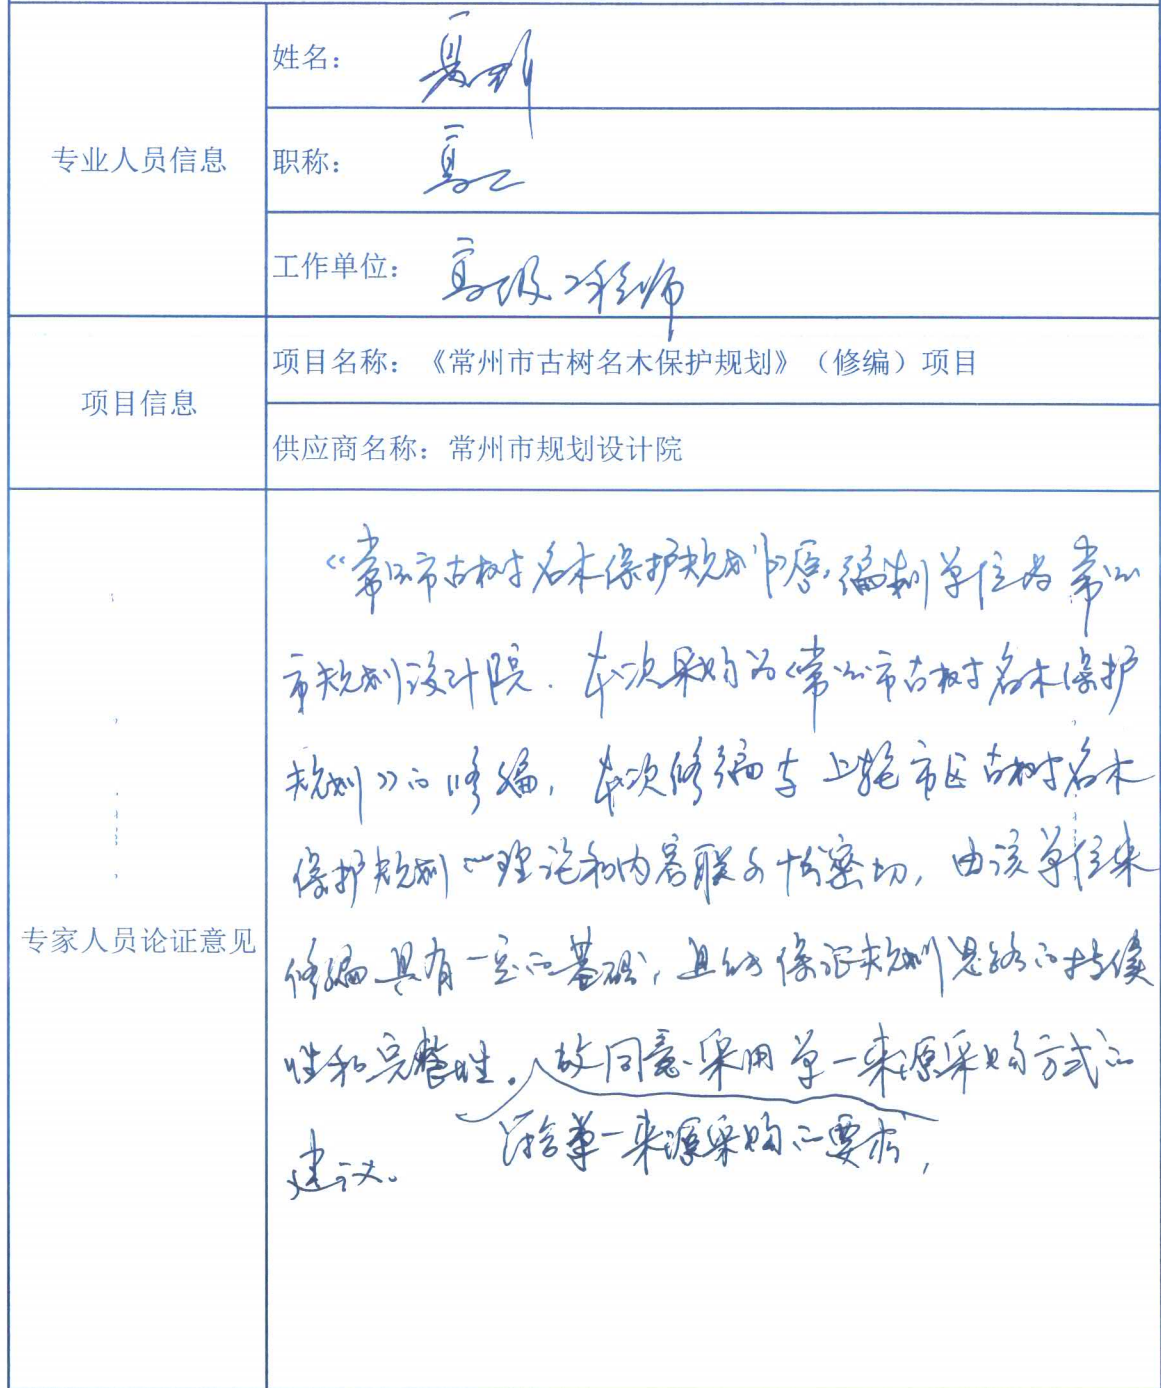 专业人员信息
姓名：
职称： 高工
工作单位： 高级工程师
项目信息
项目名称：《常州市古树名木保护规划》（修编）项目
供应商名称：常州市规划设计院
专家人员论证意见
《常州市古树名木保护规划》原编制单位为常州
市规划设计院．本次采购为《常州市古树名木保护
规划》的修编，本次修编与上轮市区古树名木
保护规划的理论和内容联系十分密切，由该单位来
修编具有一定的基础，且能够保证规划思路的持续
性和完整性。故同意采用单一来源采购方式的
符合单一来源采购的要求，
建议。